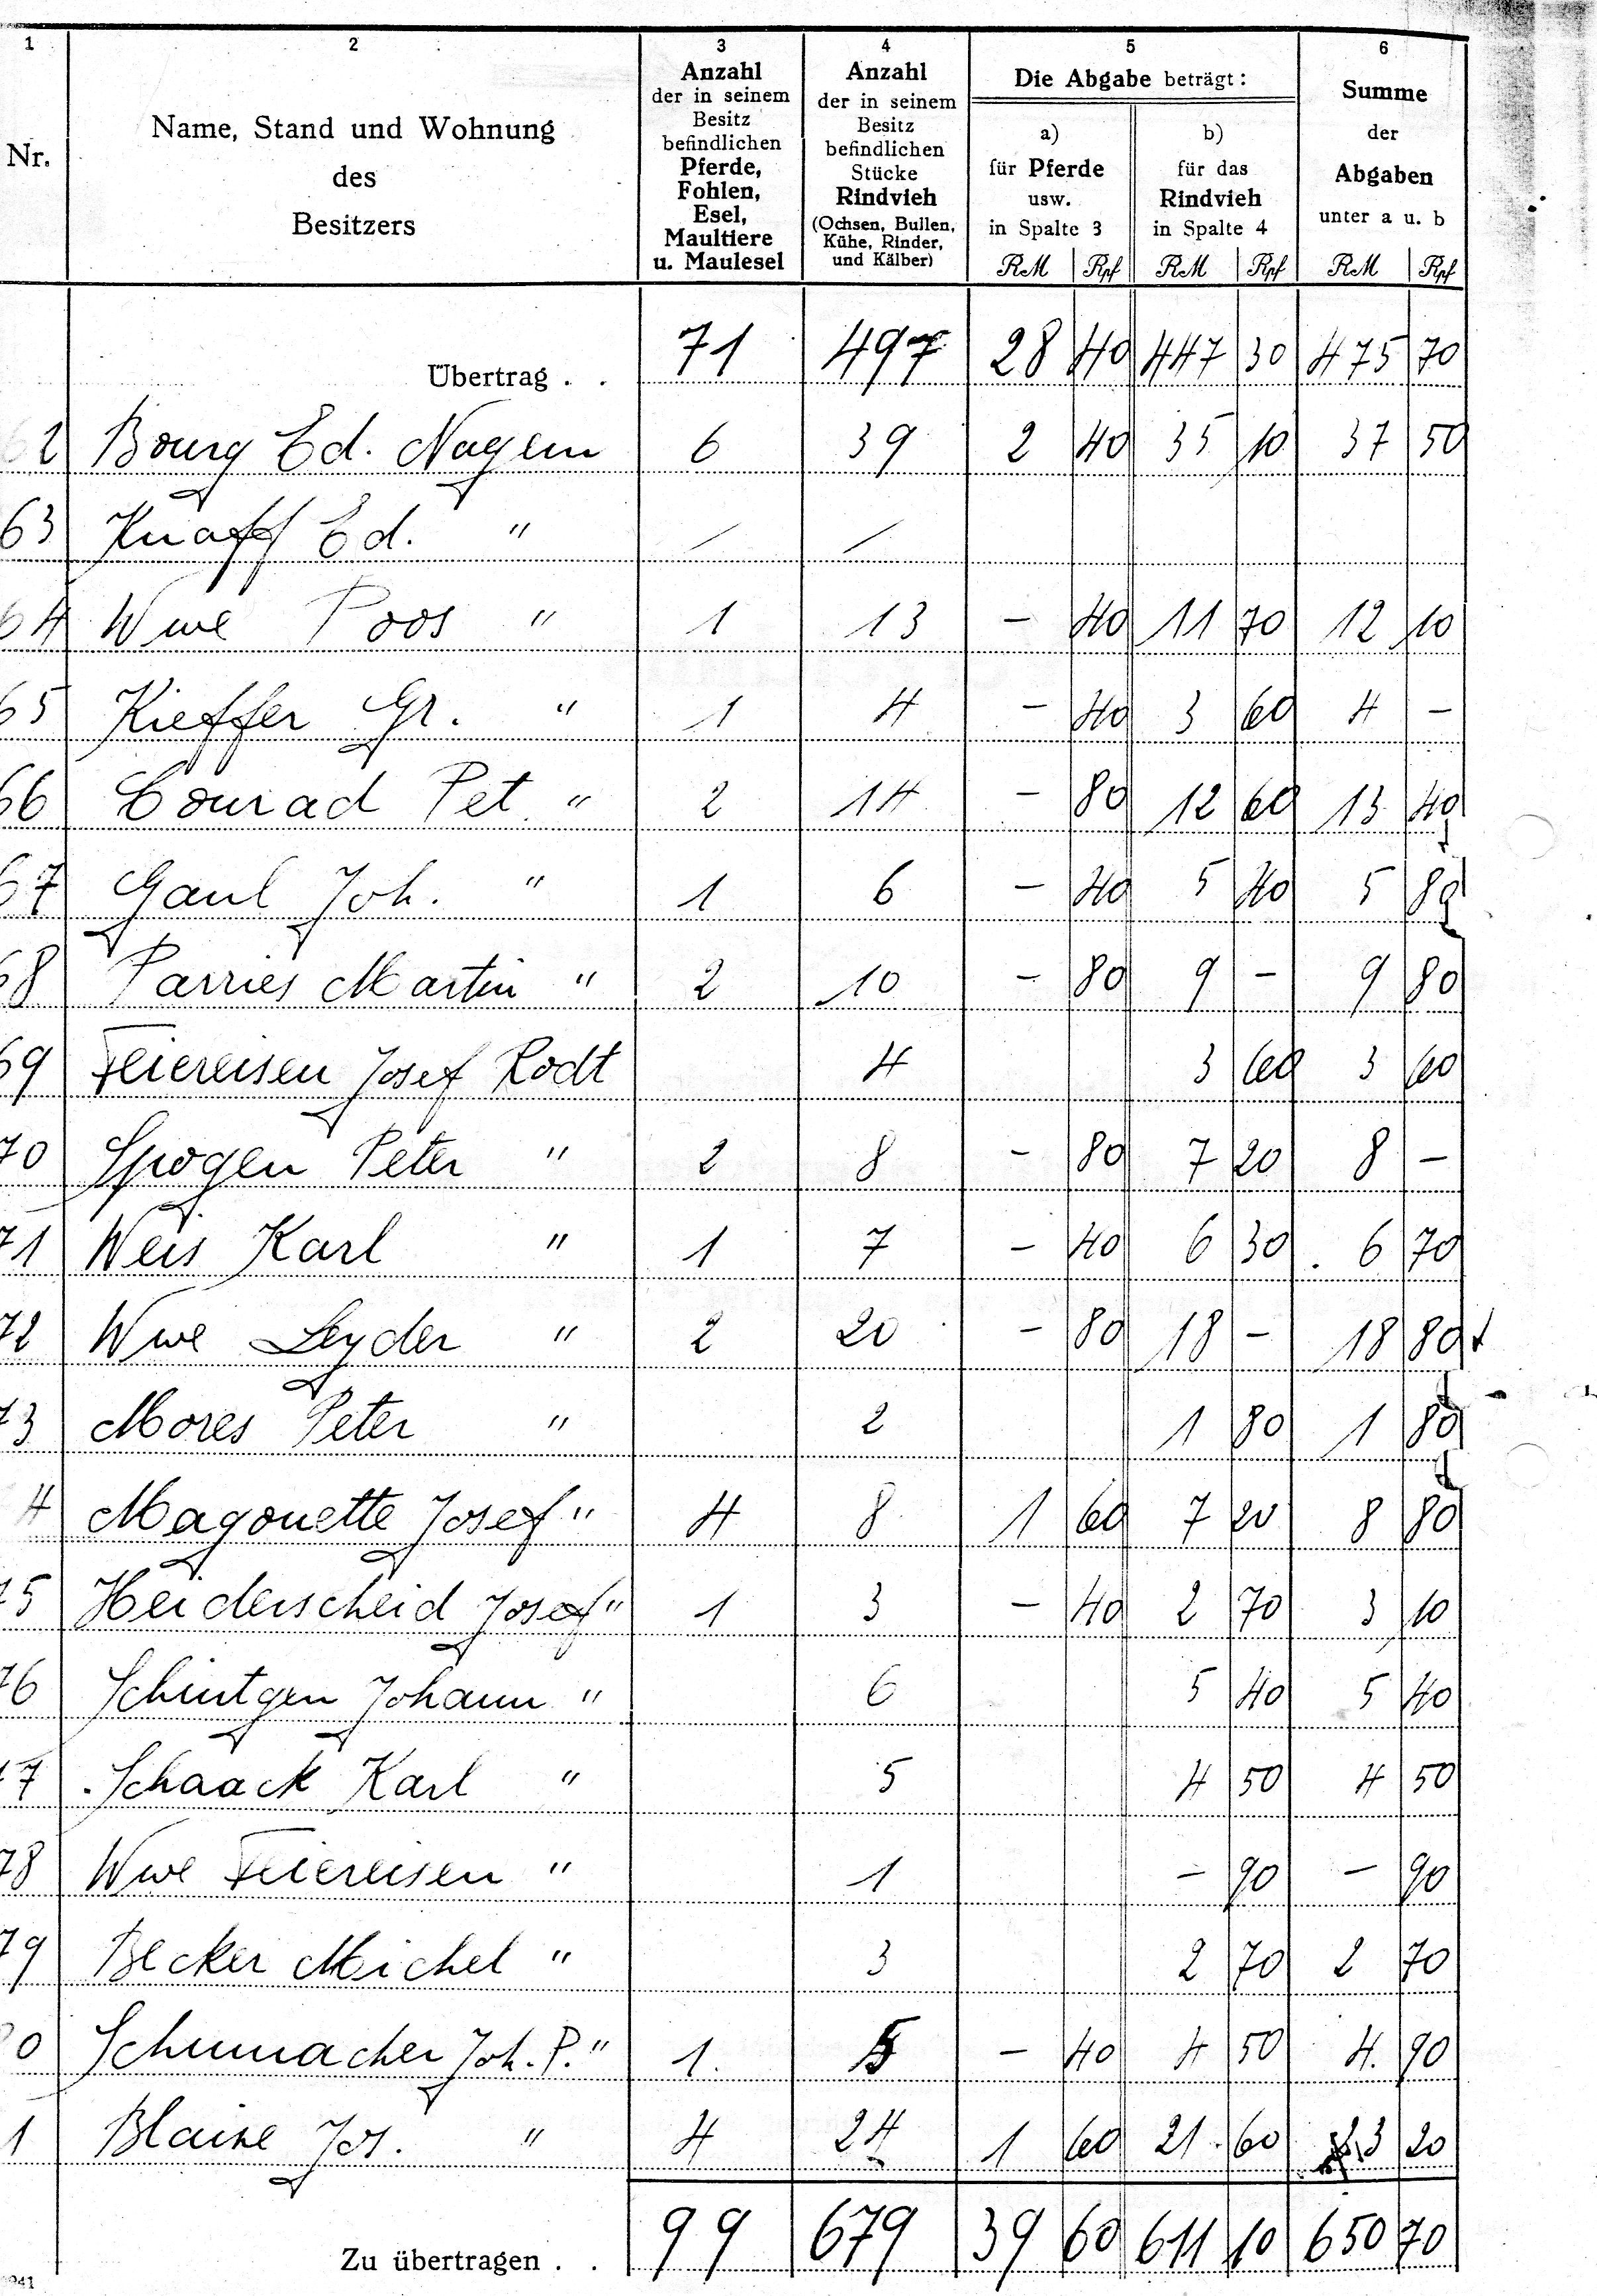 1 2 3 4 5 6
Nr.
Name, Stand und Wohnung
des
Besitzers
Anzahl
der in seinem
Besitz
befindlichen
Pferde,
Fohlen,
Esel,
Maultiere
u. Maulesel
Anzahl
der in seinem
Besitz
befindlichen
Stücke
Rindvieh
(Ochsen, Bullen,
Kühe, Rinder,
und Kälber)
Die Abgabe beträgt:
a)
für Pferde
usw.
in Spalte 3
RM Rpf
b)
für das
Rindvieh
in Spalte 4
RM Rpf
Summe
der
Abgaben
unter a u. b
RM Rpf
Übertrag . . 71 497 28 40 447 30 475 70
62 Bourg Ed. Nagem 6 39 2 40 35 10 37 50
63 Knaff Ed. " / /
64 Wwe Poos " 1 13 - 40 11 70 12 10
65 Kieffer Gr. " 1 4 - 40 3 60 4 -
66 Conrad Pet. " 2 14 - 80 12 60 13 40
67 Gaul Joh. " 1 6 - 40 5 40 5 80
68 Parries Martin " 2 10 - 80 9 - 9 80
69 Feiereisen Josef Rodt 4 3 60 3 60
70 Spogen Peter " 2 8 - 80 7 20 8 -
71 Weis Karl " 1 7 - 40 6 30 6 70
72 Wwe Leyder " 2 20 - 80 18 - 18 80
73 Mores Peter " 2 1 80 1 80
4 Magonette Josef " 4 8 1 60 7 20 8 80
75 Heiderscheid Josef " 1 3 - 40 2 70 3 10
76 Schintgen Johann " 6 5 40 5 40
77 Schaack Karl " 5 4 50 4 50
78 Wwe Feiereisen " 1 - 90 - 90
79 Becker Michel " 3 2 70 2 70
0 Schumacher Joh. P. " 1. 5 - 40 4 50 4. 90
1 Blaise Jos. " 4 24 1 60 21 60 23 20
Zu übertragen . . 99 679 39 60 611 10 650 70
941